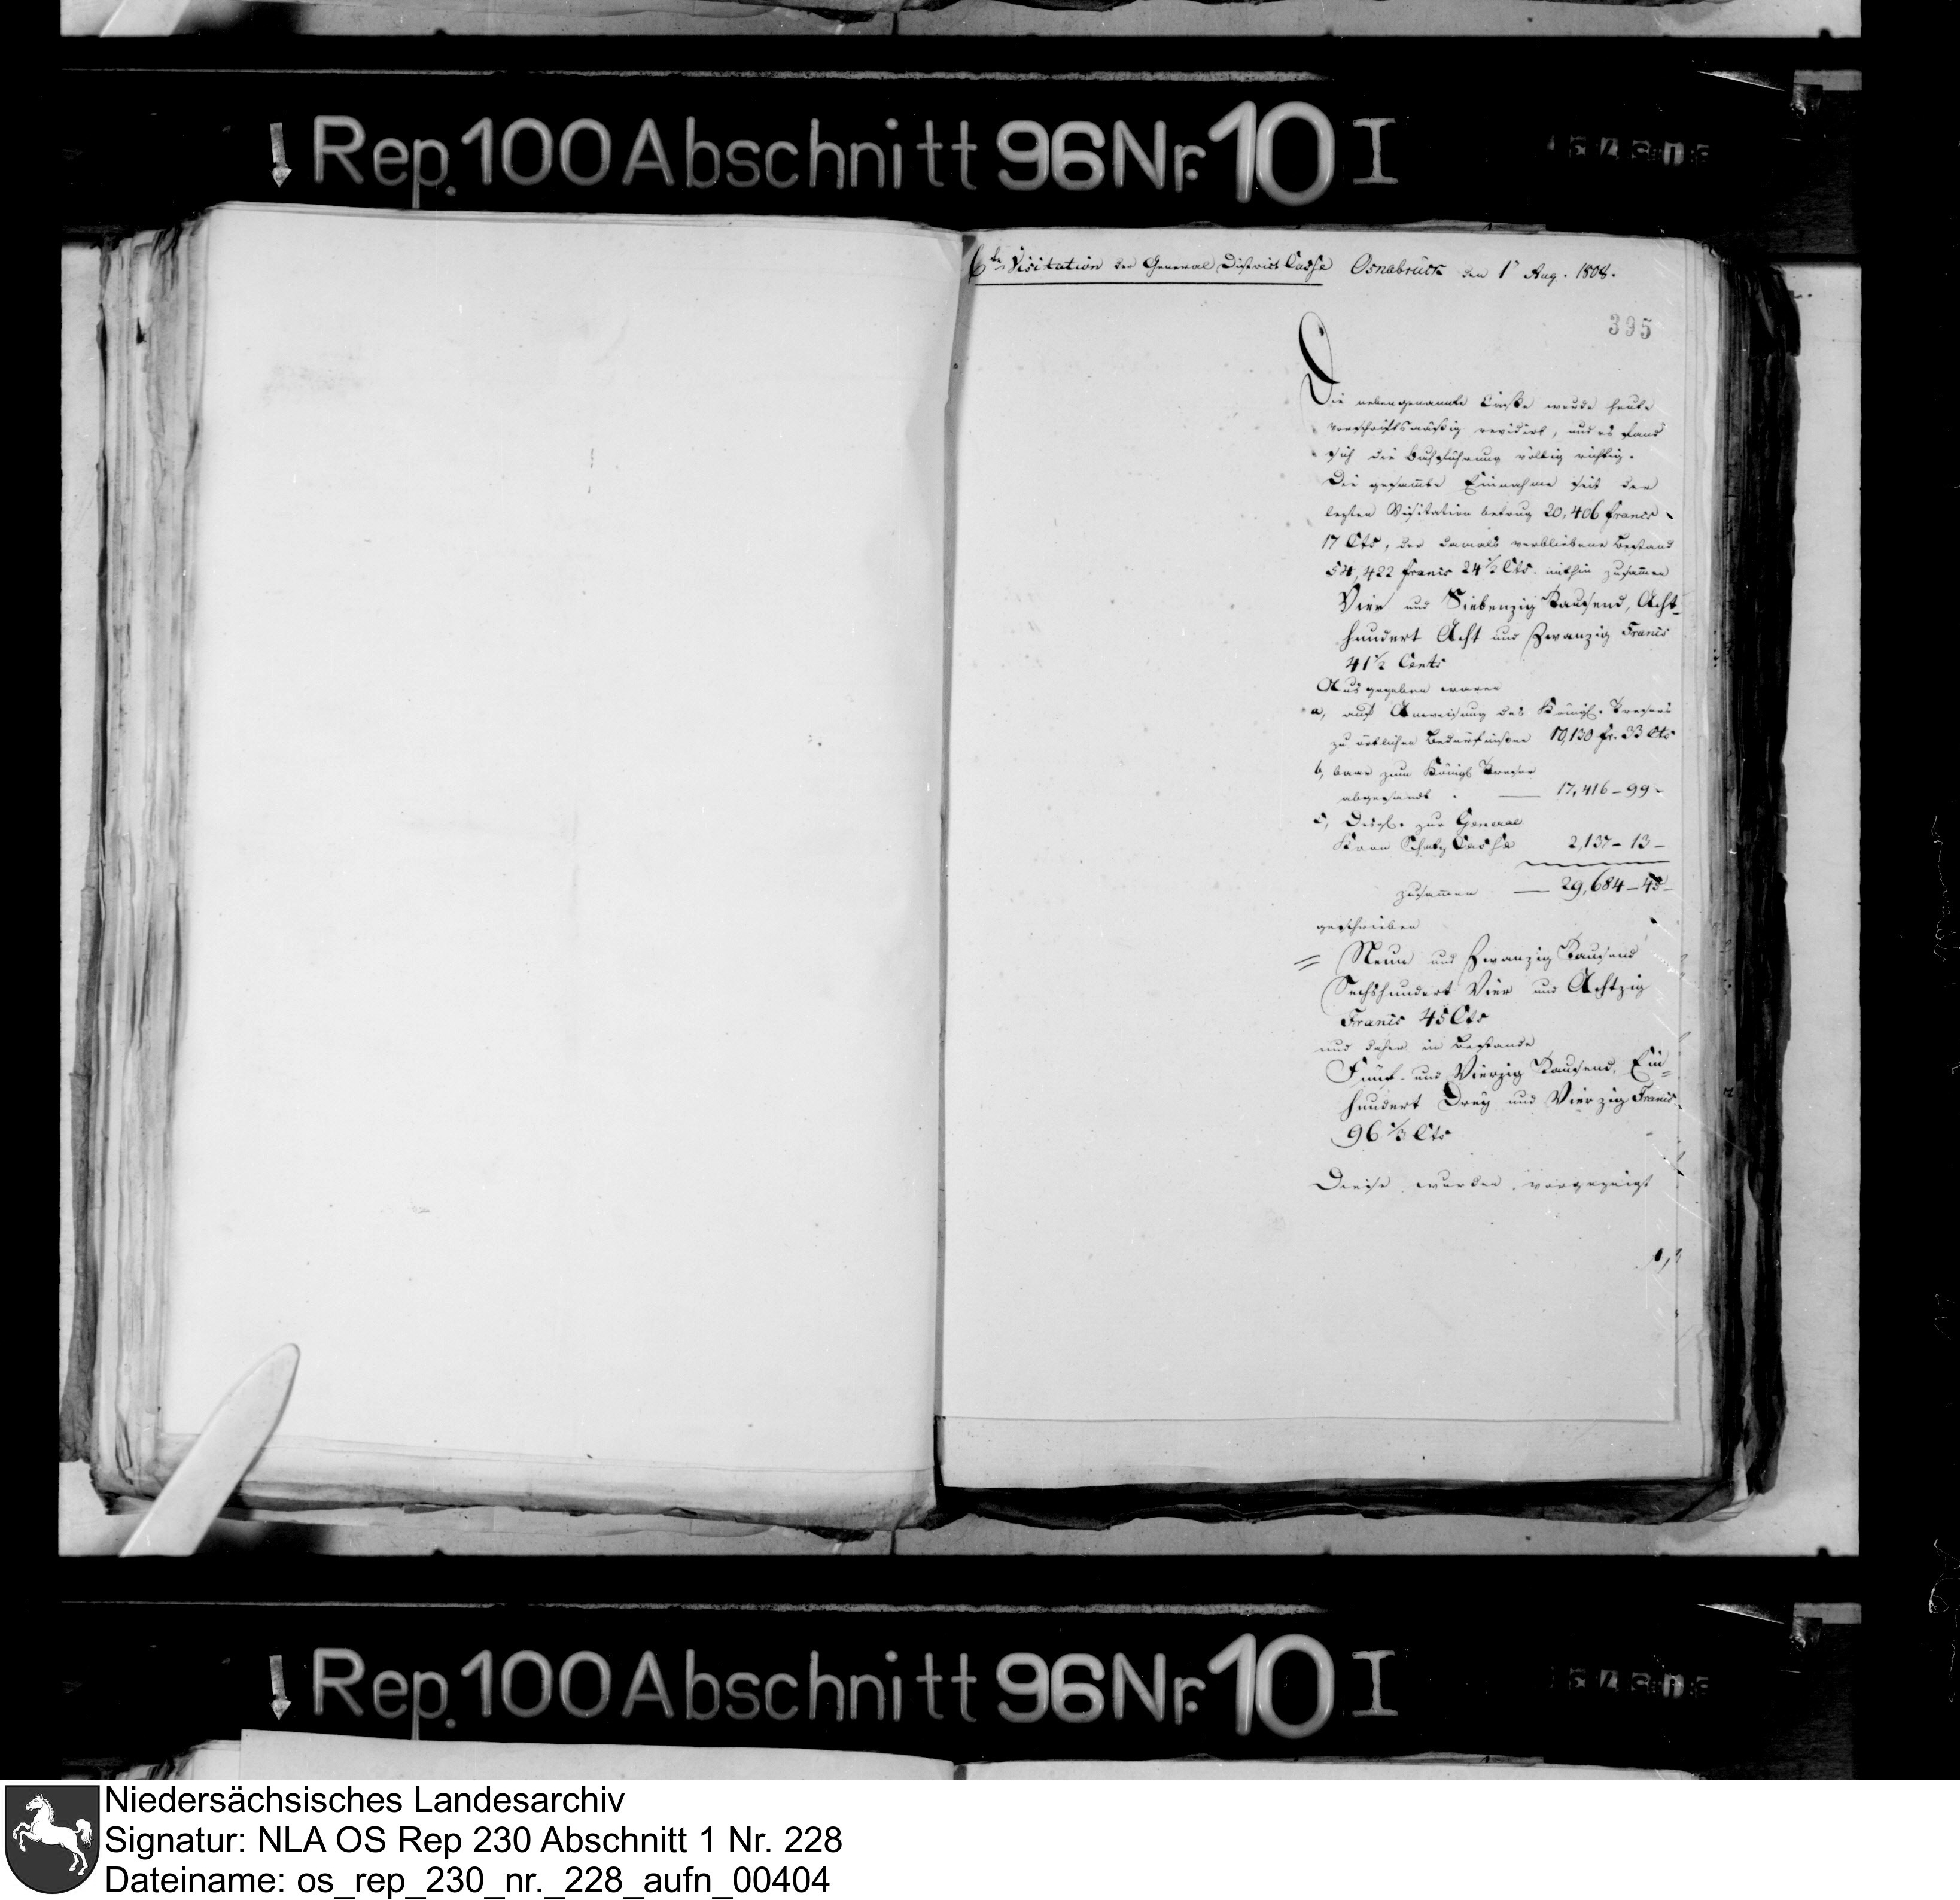 Rep. 100 Abschnitt 96 Nr. 10 I
6te Visitation der General District Casse Osnabrück den 1t Aug. 1808.
395
Die nebengenannte Casse wurde heute
vorschriftsmäßig revidirt, und es fand
sich die Buchführung völlig richtig.
Die gesam̅te Einnahme seit der
lezten Visitation betrug 20,406 francs
17 Cts, der damals verbliebene Bestand
54,422 francs 24 1/2 Cts. mithin zusam̅en
Vier und Siebenzig Tausend, Acht-
hundert Acht und Zwanzig Francs
41 1/2 Cents
Ausgegeben waren
a, auf Anweisung des Königl. Tresors
zu örtlichen Bedürfnißen 10,130 fr. 33 Cts
b, baar zum Königl Tresor
abgesandt — 17,416 - 99 -
c, Desgl. zur General
Korn Schatz Casse 2,137 - 13 -
zusam̅en — 29,684 - 45 -
geschrieben
= Neun und Zwanzig Tausend
Sechshundert Vier und Achtzig
Francs 45 Cts
und daher in Bestande
Fünf und Vierzig Tausend, Ein=
hundert Drey und Vierzig Francs
96 1/2 Cts
Diese wurden vorgezeigt
Rep. 100 Abschnitt 96 Nr. 10 I
Niedersächsisches Landesarchiv
Signatur: NLA OS Rep 230 Abschnitt 1 Nr. 228
Dateiname: os_rep_230_nr._228_aufn_00404